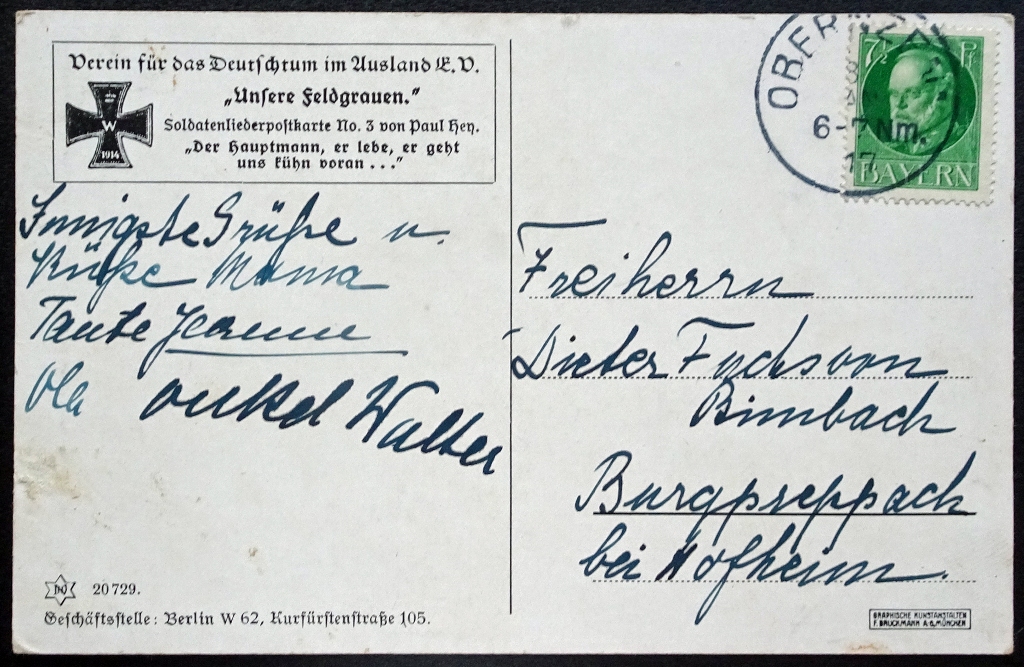 Verein für das Deutschtum im Ausland E. V.
„Unsere Feldgrauen."
Soldatenliederpostkarte No. 3 von Paul Hey.
„Der Hauptmann, er lebe, er geht
uns kühn voran . . ."
W
1914
Innigste Grüße u.
Küße Mama
Tante Jeanne
Ola
onkel Walter
DO 20729.
Geschäftsstelle: Berlin W 62, Kurfürstenstraße 105.
OBER
6-7 Nm.
17
7½ Pf
BAYERN
Freiherrn
Dieter Fuchs von
Bimbach
Burgpreppach
bei Hofheim.
GRAPHISCHE KUNSTANSTALTEN
F. BRUCKMANN A.G. MÜNCHEN